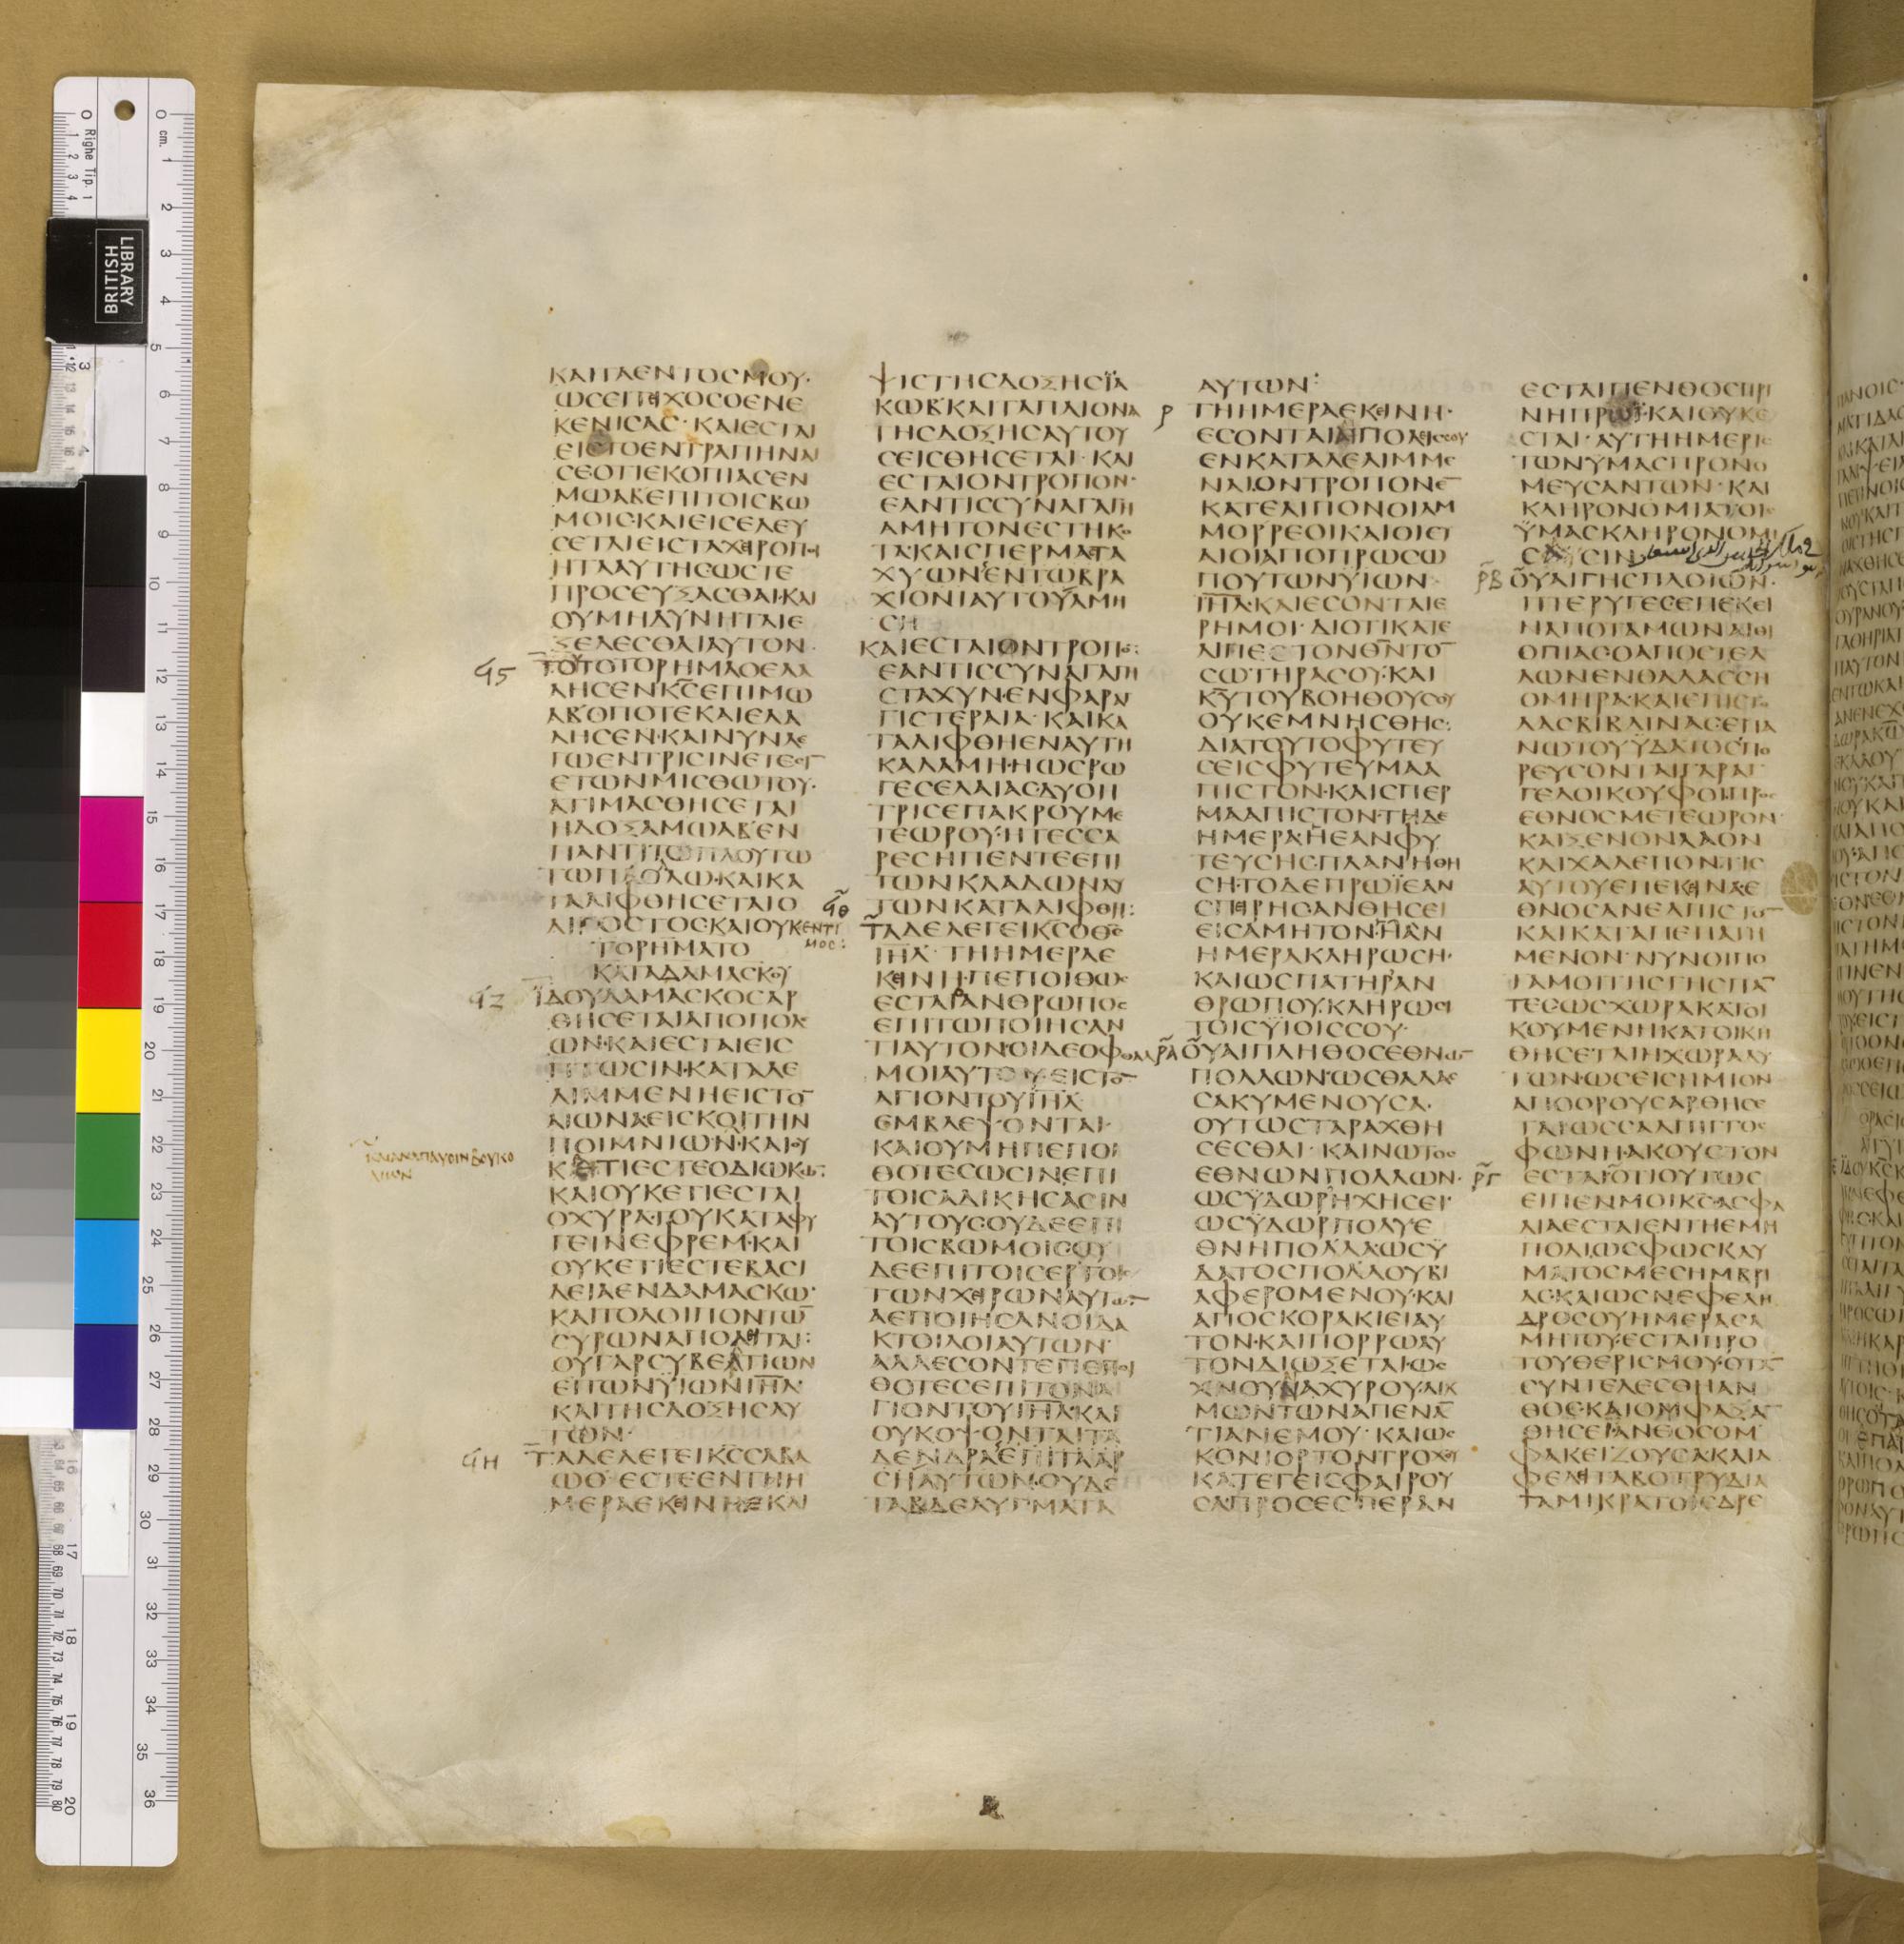 ΚΑΙΤΑΕΝΤΟCΜΟΥ·
ΩCΕΠΙΤΙΧΟCΟΕΝΕ
ΚΕΝΙCΑC· ΚΑΙΕCΤΑΙ
ΕΙCΤΟΕΝΤΡΑΠΗΝΑΙ
CΕΟΤΙΕΚΟΠΙΑCΕΝ
ΜΩΑΒΕΠΙΤΟΙCΒΩ
ΜΟΙC·ΚΑΙΕΙCΕΛΕΥ
CΕΤΑΙΕΙCΤΑΧΕΙΡΟΠΟΙ
ΗΤΑΑΥΤΗCΩCΤΕ
ΠΡΟCΕΥΞΑCΘΑΙ·ΚΑΙ
ΟΥΜΗΔΥΝΗΤΑΙΕ
ΞΕΛΕCΘΑΙΑΥΤΟΝ·
ϤϚ ΤΟΥΤΟΤΟΡΗΜΑΟΕΛΑ
ΛΗCΕΝΚ̅C̅ΕΠΙΜΩ
ΑΒΟΠΟΤΕΚΑΙΕΛΑ
ΛΗCΕΝ·ΚΑΙΝΥΝΛΕ
ΓΩΕΝΤΡΙCΙΝΕΤΕCΙ
ΕΤΩΝΜΙCΘΩΤΟΥ·
ΑΤΙΜΑCΘΗCΕΤΑΙ
ΗΔΟΞΑΜΩΑΒΕΝ
ΠΑΝΤΙΤΩΠΛΟΥΤΩ
ΤΩΠΟΛΛΩ·ΚΑΙΚΑ
ΤΑΛΙΦΘΗCΕΤΑΙΟ
ΛΙΓΟCΤΟC·ΚΑΙΟΥΚΕΝΤΙ
ΜΟC:
ΤΟΡΗΜΑΤΟ
ΚΑΤΑΔΑΜΑCΚΟΥ
ϤΖ ΪΔΟΥΔΑΜΑCΚΟCΑΡ
ΘΗCΕΤΑΙΑΠΟΠΟΛΕ
ΩΝ·ΚΑΙΕCΤΑΙΕΙC
ΠΤΩCΙΝ·ΚΑΤΑΛΕ
ΛΙΜΜΕΝΗΕΙCΤΟ̅
ΑΙΩΝΑ·ΕΙCΚΟΙΤΗΝ
ΠΟΙΜΝΙΩΝ·ΚΑΙΟΥ
ΚΑΙΑΝΑΠΑΥCΙΝΒΟΥΚΟ
ΛΙΩΝ
ΚΕΤΙΕCΤΕΟΔΙΩΚΩ̅:
ΚΑΙΟΥΚΕΤΙΕCΤΑΙ
ΟΧΥΡΑΤΟΥΚΑΤΑΦΥ
ΓΕΙΝΕΦΡΕΜ·ΚΑΙ
ΟΥΚΕΤΙΕCΤΕΒΑCΙ
ΛΕΙΑΕΝΔΑΜΑCΚΩ·
ΚΑΙΤΟΛΟΙΠΟΝΤΩ̅
CΥΡΩΝΑΠΟΛΕΙΤΑΙ:
ΟΥΓΑΡCΥΒΕΛΤΙΩΝ
ΕΙΤΩΝΫΙΩΝΙ̅Η̅Λ̅·
ΚΑΙΤΗCΔΟΞΗCΑΥ
ΤΩΝ·
ϤΗ ΤΑΔΕΛΕΓΕΙΚ̅C̅CΑΒΑ
ΩΘ·ΕCΤΕΕΝΤΗΗ
ΜΕΡΑΕΚΕΙΝΗΕΚΛΙ
ΨΙCΤΗCΔΟΞΗCΪΑ
ΚΩΒ·ΚΑΙΤΑΠΙΟΝΑ
ΤΗCΔΟΞΗCΑΥΤΟΥ
CΕΙCΘΗCΕΤΑΙ· ΚΑΙ
ΕCΤΑΙΟΝΤΡΟΠΟΝ·
ΕΑΝΤΙCCΥΝΑΓΑΓΗ
ΑΜΗΤΟΝΕCΤΗΚΟ
ΤΑ·ΚΑΙCΠΕΡΜΑΤΑ
ΧΥΩΝΕΝΤΩΒΡΑ
ΧΙΟΝΙΑΥΤΟΥΑΜΗ
CΗ
ΚΑΙΕCΤΑΙΟΝΤΡΟΠΟ̅:
ΕΑΝΤΙCCΥΝΑΓΑΓΗ
CΤΑΧΥΝ·ΕΝΦΑΡΑΓ
ΓΙCΤΕΡΑΙΑ· ΚΑΙΚΑ
ΤΑΛΙΦΘΗΕΝΑΥΤΗ
ΚΑΛΑΜΗ·ΗΩCΡΩ
ΓΕCΕΛΑΙΑC·ΔΥΟΗ
ΤΡΙCΕΠΑΚΡΟΥΜΕ
ΤΕΩΡΟΥ·ΗΤΕCCΑ
ΡΕCΗΠΕΝΤΕΕΠΙ
ΤΩΝΚΛΑΔΩΝΑΥ
ΤΩΝΚΑΤΑΛΙΦΘΗ:
ϤΘ ΤΑΔΕΛΕΓΕΙΚ̅C̅ΟΘ̅C̅
Ι̅Η̅Λ̅· ΤΗΗΜΕΡΑΕ
ΚΕΙΝΗ·ΠΕΠΟΙΘΩC
ΕCΤΑΙΑΝΘΡΩΠΟC
ΕΠΙΤΩΠΟΙΗCΑΝ
ΤΙΑΥΤΟΝ·ΟΙΔΕΟΦΘΑΛ
ΜΟΙΑΥΤΟΥΕΙCΤΟ̅
ΑΓΙΟΝΤΟΥΙ̅Η̅Λ̅
ΕΜΒΛΕΨΟΝΤΑΙ·
ΚΑΙΟΥΜΗΠΕΠΟΙ
ΘΟΤΕCΩCΙΝΕΠΙ
ΤΟΙCΑΔΙΚΗCΑCΙΝ
ΑΥΤΟΥC·ΟΥΔΕΕΠΙ
ΤΟΙCΒΩΜΟΙCΟΥ
ΔΕΕΠΙΤΟΙCΕΡΓΟΙC
ΤΩΝΧΕΙΡΩΝΑΥΤΩ̅
ΑΕΠΟΙΗCΑΝΟΙΔΑ
ΚΤΟΙΛΟΙΑΥΤΩΝ·
ΑΛΛΕCΟΝΤΕΠΕΠΟΙ
ΘΟΤΕCΕΠΙΤΟΝΑ
ΓΙΟΝΤΟΥΙ̅Η̅Λ̅·ΚΑΙ
ΟΥΚΟΨΟΝΤΑΙΤΑ
ΔΕΝΔΡΑΕΠΙΤΑΑΡ
CΗΑΥΤΩΝ·ΟΥΔΕ
ΤΑΒΔΕΛΥΓΜΑΤΑ
ΑΥΤΩΝ:
Ρ ΤΗΗΜΕΡΑΕΚΕΙΝΗ·
ΕCΟΝΤΑΙΑΙΠΟΛΕΙCCΟΥ
ΕΝΚΑΤΑΛΕΛΙΜΜΕ
ΝΑΙ·ΟΝΤΡΟΠΟΝΕ̅
ΚΑΤΕΛΙΠΟΝΟΙΑΜ
ΜΟΡΡΕΟΙΚΑΙΟΙΕΥ
ΑΙΟΙΑΠΟΠΡΩCΩ
ΠΟΥΤΩΝΫΙΩΝ
Ι̅Η̅Λ̅·ΚΑΙΕCΟΝΤΑΙΕ
ΡΗΜΟΙ· ΔΙΟΤΙΚΑΤΕ
ΛΙΠΕCΤΟΝΘ̅Ν̅ΤΟ̅
CΩΤΗΡΑCΟΥ·ΚΑΙ
Κ̅Υ̅ΤΟΥΒΟΗΘΟΥCΟΥ
ΟΥΚΕΜΝΗCΘΗC:
ΔΙΑΤΟΥΤΟΦΥΤΕΥ
CΕΙCΦΥΤΕΥΜΑΑ
ΠΙCΤΟΝ·ΚΑΙCΠΕΡ
ΜΑΑΠΙCΤΟΝ·ΤΗΔΕ
ΗΜΕΡΑΗΕΑΝΦΥ
ΤΕΥCΗCΠΛΑΝΗΘΗ
CΗ·ΤΟΔΕΠΡΩΪΕΑΝ
CΠΕΙΡΗC·ΑΝΘΗCΕΙ
ΕΙCΑΜΗΤΟΝΗΑΝ
ΗΜΕΡΑΚΛΗΡΩCΗ·
ΚΑΙΩCΠΑΤΗΡΑΝ
ΘΡΩΠΟΥ·ΚΛΗΡΩCΗ
ΤΟΙCΫΙΟΙCCΟΥ·
ΡΑ ΟΥΑΙΠΛΗΘΟCΕΘΝΩ̅
ΠΟΛΛΩΝ·ΩCΘΑΛΑC
CΑΚΥΜΕΝΟΥCΑ·
ΟΥΤΩCΤΑΡΑΧΘΗ
CΕCΘΑΙ· ΚΑΙΝΩΤΟC
ΕΘΝΩΝΠΟΛΛΩΝ·
ΩCΫΔΩΡΗΧΗCΕΙ·
ΩCΫΔΩΡΠΟΛΥ·Ε
ΘΝΗΠΟΛΛΑΩCΫ
ΔΑΤΟCΠΟΛΛΟΥΒΙ
ΑΦΕΡΟΜΕΝΟΥ·ΚΑΙ
ΑΠΟCΚΟΡΑΚΙΕΙΑΥ
ΤΟΝ·ΚΑΙΠΟΡΡΩΑΥ
ΤΟΝΔΙΩΞΕΤΑΙ·ΩC
ΧΝΟΥΝΑΧΥΡΟΥ·ΛΙΚ
ΜΩΝΤΩΝΑΠΕΝΑ̅
ΤΙΑΝΕΜΟΥ· ΚΑΙΩC
ΚΟΝΙΟΡΤΟΝΤΡΟΧΟΥ
ΚΑΤΕΓΕΙCΦΑΙΡΟΥ
CΑΠΡΟCΕCΠΕΡΑΝ
ΕCΤΑΙΠΕΝΘΟCΠΡΙ
ΝΗΠΡΩΪ·ΚΑΙΟΥΚΕ
CΤΑΙ· ΑΥΤΗΗΜΕΡΙC
ΤΩΝΥΜΑCΠΡΟΝΟ
ΜΕΥCΑΝΤΩΝ· ΚΑΙ
ΚΛΗΡΟΝΟΜΙΑΤΟΙC
ΫΜΑCΚΛΗΡΟΝΟΜΗ
CΑCΙΝ
ΡΒ ΟΥΑΙΓΗCΠΛΟΙΩΝ·
ΠΤΕΡΥΓΕCΕΠΕΚΕΙ
ΝΑΠΟΤΑΜΩΝΑΙΘΙ
ΟΠΙΑCΟΑΠΟCΤΕΛ
ΛΩΝΕΝΘΑΛΑCCΗ
ΟΜΗΡΑ·ΚΑΙΕΠΙCΤΟ
ΛΑCΒΙΒΛΙΝΑCΕΠΑ
ΝΩΤΟΥΫΔΑΤΟC·ΠΟ
ΡΕΥCΟΝΤΑΙΓΑΡΑΓ
ΓΕΛΟΙΚΟΥΦΟΙΠΡΟC
ΕΘΝΟCΜΕΤΕΩΡΟΝ
ΚΑΙΞΕΝΟΝΛΑΟΝ
ΚΑΙΧΑΛΕΠΟΝ·ΤΙC
ΑΥΤΟΥΕΠΕΚΕΙΝΑ·Ε
ΘΝΟCΑΝΕΛΠΙCΤΟ̅
ΚΑΙΚΑΤΑΠΕΠΑΤΗ
ΜΕΝΟΝ· ΝΥΝΟΙΠΟ
ΤΑΜΟΙΤΗCΓΗCΠΑ̅
ΤΕC·ΩCΧΩΡΑΚΑΤΟΙ
ΚΟΥΜΕΝΗΚΑΤΟΙΚΗ
ΘΗCΕΤΑΙΗΧΩΡΑΑΥ
ΤΩΝ·ΩCΕΙCΗΜΙΟΝ
ΑΠΟΟΡΟΥCΑΡΘΗCΕ
ΤΑΙ·ΩCCΑΛΠΙΓΓΟC
ΦΩΝΗ·ΑΚΟΥCΤΟΝ
ΡΓ ΕCΤΑΙΟΤΙΟΥΤΩC
ΕΙΠΕΝΜΟΙΚ̅C̅·ΑCΦΑ
ΛΙΑΕCΤΑΙΕΝΤΗΕΜΗ
ΠΟΛΙ·ΩCΦΩCΚΑΥ
ΜΑΤΟCΜΕCΗΜΒΡΙ
ΑC·ΚΑΙΩCΝΕΦΕΛΗ
ΔΡΟCΟΥΗΜΕΡΑCΑ
ΜΗΤΟΥ·ΕCΤΑΙΠΡΟ
ΤΟΥΘΕΡΙCΜΟΥ·ΟΤΑ̅
CΥΝΤΕΛΕCΘΗΑΝ
ΘΟC·ΚΑΙΟΜΦΑΞΑ̅
ΘΗCΕΡΑΝΘΟCΟΜ
ΦΑΚΕΙΖΟΥCΑ·ΚΑΙΑ
ΦΕΛΕΙΤΑΒΟΤΡΥΔΙΑ
ΤΑΜΙΚΡΑΤΟΙCΔΡΕ
LIBRARY
BRITISH